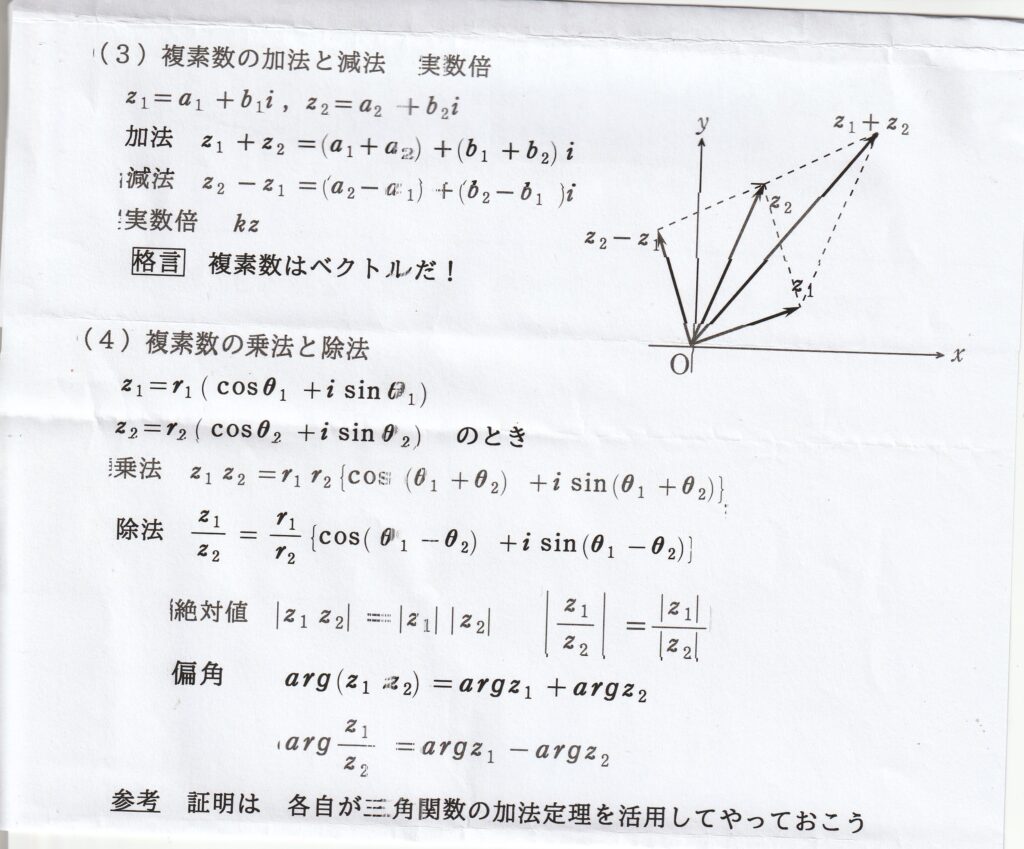 (3) 複素数の加法と減法 実数倍
z₁=a₁+b₁i, z₂=a₂+b₂i
加法 z₁+z₂=(a₁+a₂)+(b₁+b₂)i
減法 z₂−z₁=(a₂−a₁)+(b₂−b₁)i
実数倍 kz
格言 複素数はベクトルだ!
y
z₁+z₂
z₂
z₂−z₁
z₁
O
x
(4) 複素数の乗法と除法
z₁=r₁(cosθ₁+i sinθ₁)
z₂=r₂(cosθ₂+i sinθ₂) のとき
乗法 z₁z₂=r₁r₂{cos(θ₁+θ₂)+i sin(θ₁+θ₂)}
除法 z₁/z₂=r₁/r₂{cos(θ₁−θ₂)+i sin(θ₁−θ₂)}
絶対値 |z₁z₂|=|z₁||z₂| |z₁/z₂|=|z₁|/|z₂|
偏角 arg(z₁z₂)=argz₁+argz₂
arg z₁/z₂=argz₁−argz₂
参考 証明は 各自が三角関数の加法定理を活用してやっておこう